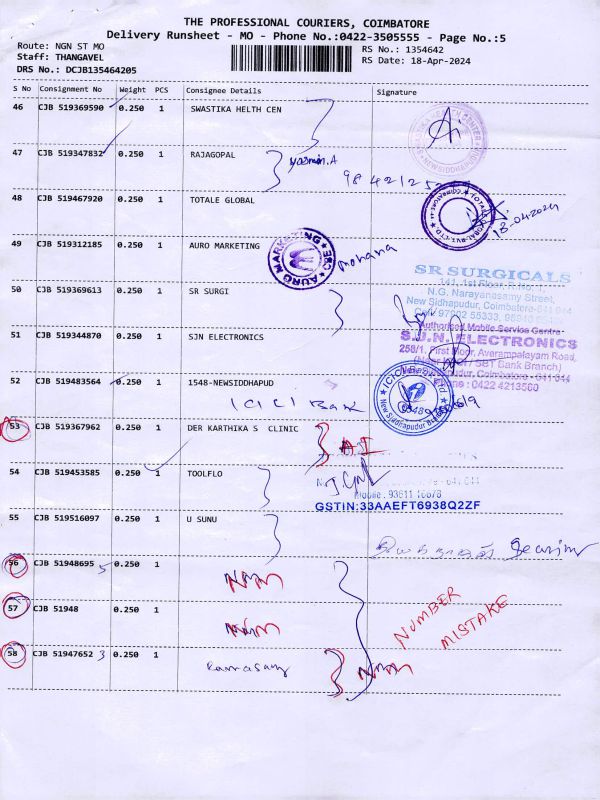 THE PROFESSIONAL COURIERS, COIMBATORE
Delivery Runsheet - MO - Phone No.:0422-3505555 - Page No.:5
Route: NGN ST MO
RS No.: 1354642
Staff: THANGAVEL
RS Date: 18-Apr-2024
DRS No.: DCJB135464205
S No Consignment No Weight PCS Consignee Details Signature
46 CJB 519369590 0.250 1 SWASTIKA HELTH CEN
47 CJB 519347832 0.250 1 RAJAGOPAL Yasmin.A
98 42125
48 CJB 519467920 0.250 1 TOTALE GLOBAL
18-04-2024
49 CJB 519312185 0.250 1 AURO MARKETING
AURO MARKETING CBE
mohana
SR SURGICALS
141, 1st Floor, R.No. 1,
N.G. Narayanasamy Street,
New Sidhapudur, Coimbatore-641 044
50 CJB 519369613 0.250 1 SR SURGI
Cell: 97902 55333,
Authorised Mobile Service Centre
51 CJB 519344870 0.250 1 SJN ELECTRONICS
S.J.N. ELECTRONICS
258/1, First Floor, Avarampalayam Road,
SBT Bank Branch)
Coimbatore - 641 044
Phone : 0422 4213560
52 CJB 519483564 0.250 1 1548-NEWSIDDHAPUD
ICICI Bank
ICICI Bank Ltd
New Siddhapudur
53 CJB 519367962 0.250 1 DER KARTHIKA S CLINIC
54 CJB 519453585 0.250 1 TOOLFLO
GSTIN:33AAEFT6938Q2ZF
55 CJB 519516097 0.250 1 U SUNU
56 CJB 51948695 5 0.250 1
57 CJB 51948 0.250 1
NUMBER
MISTAKE
58 CJB 51947652 3 0.250 1 Ramasamy